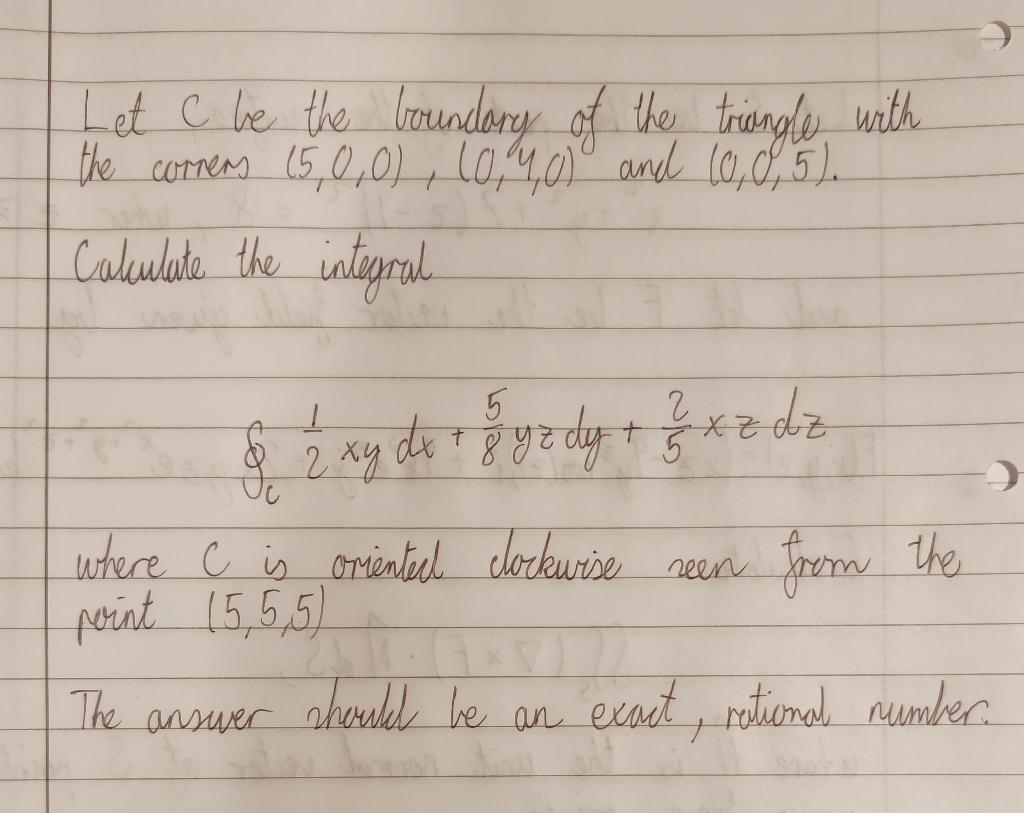 Let C be the boundary of the triangle with
the corners (5,0,0), (0,4,0) and (0,0,5).
Calculate the integral
∮_C 1/2 xy dx + 5/8 yz dy + 2/5 xz dz
where C is oriented clockwise seen from the
point (5,5,5)
The answer should be an exact, rational number.